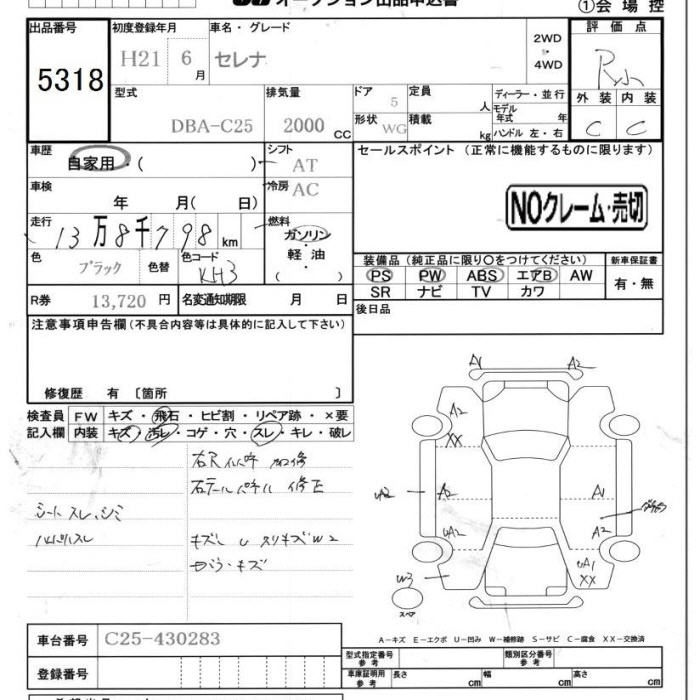 オークション出品申込書
①会場控
出品番号 初度登録年月 車名・グレード 評価点
5318 H21 6月 セレナ 2WD・4WD R小
型式 排気量 ドア 5 定員 人 ディーラー・並行 外装 内装
DBA-C25 2000 CC 形状 WG 積載 kg モデル年式 年 ハンドル 左・右 C C
車歴 自家用・( ) シフト AT セールスポイント (正常に機能するものに限ります)
車検 年 月( 日) 冷房 AC
NOクレーム・売切
走行 13万8千798km 燃料 ガソリン・軽油 ( )
色 ブラック 色替 色コード KH3
装備品(純正品に限り○をつけてください) 新車保証書
PS PW ABS エアB AW 有・無
SR ナビ TV カワ
R券 13,720円 名変通知期限 月 日
後日品
注意事項申告欄(不具合内容等は具体的に記入して下さい)
修復歴 有 〔箇所 〕
検査員 FW キズ・飛石・ヒビ割・リペア跡・×要
記入欄 内装 キズ・汚レ・コゲ・穴・スレ・キレ・破レ
シート スレ、シミ
キズ U スリキズ W2
A1 A2
A2
XX
A2 A2 A1
UA2 A2
W3 UA1
XX
スペア
A-キズ E-エクボ U-凹み W-補修跡 S-サビ C-腐食 XX-交換済
車台番号 C25-430283
型式指定番号 参考 類別区分番号 参考
登録番号 車庫証明用 参考 長さ cm 幅 cm 高さ cm